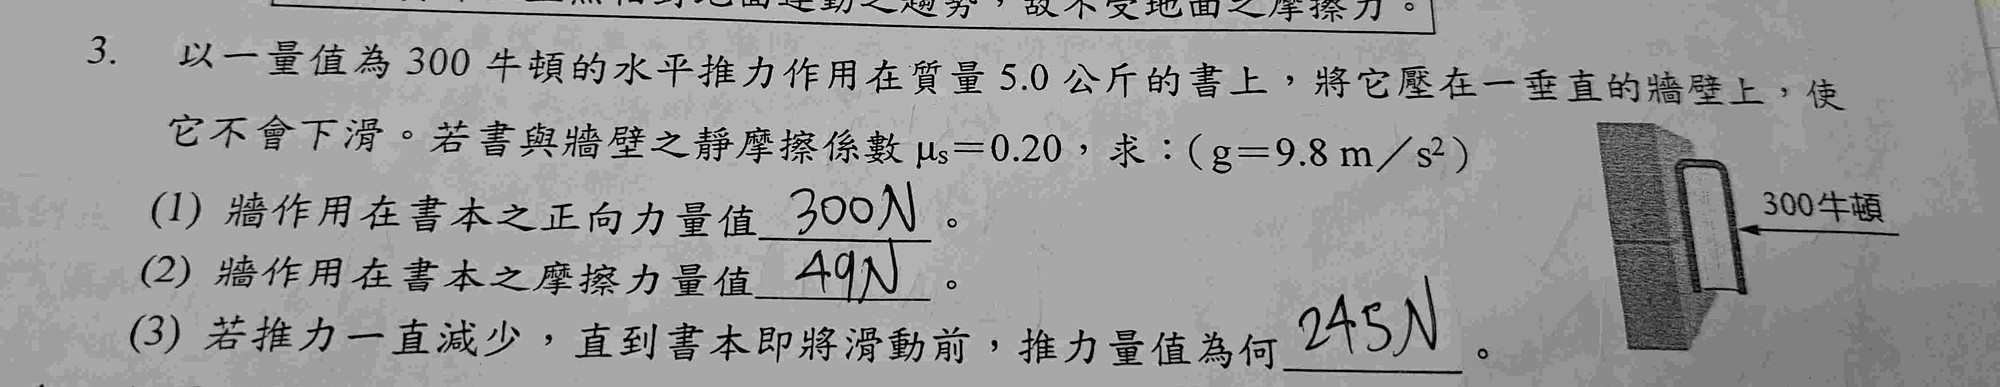 運動之趨勢，故不受地面之摩擦力。
3. 以一量值為 300 牛頓的水平推力作用在質量 5.0 公斤的書上，將它壓在一垂直的牆壁上，使
它不會下滑。若書與牆壁之靜摩擦係數 μs＝0.20，求：（g＝9.8 m／s²）
(1) 牆作用在書本之正向力量值 300N 。
300牛頓
(2) 牆作用在書本之摩擦力量值 49N 。
(3) 若推力一直減少，直到書本即將滑動前，推力量值為何 245N 。